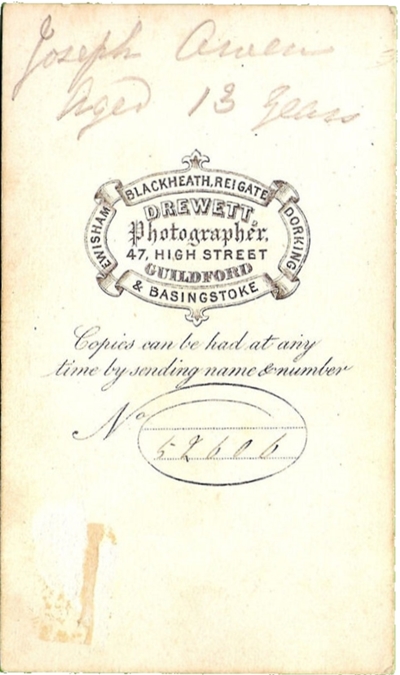 Joseph Owen
Aged 13 Years
BLACKHEATH, REIGATE
EWISHAM
DORKING
DREWETT,
Photographer,
47, HIGH STREET
GUILDFORD
& BASINGSTOKE
Copies can be had at any
time by sending name & number
No
52606